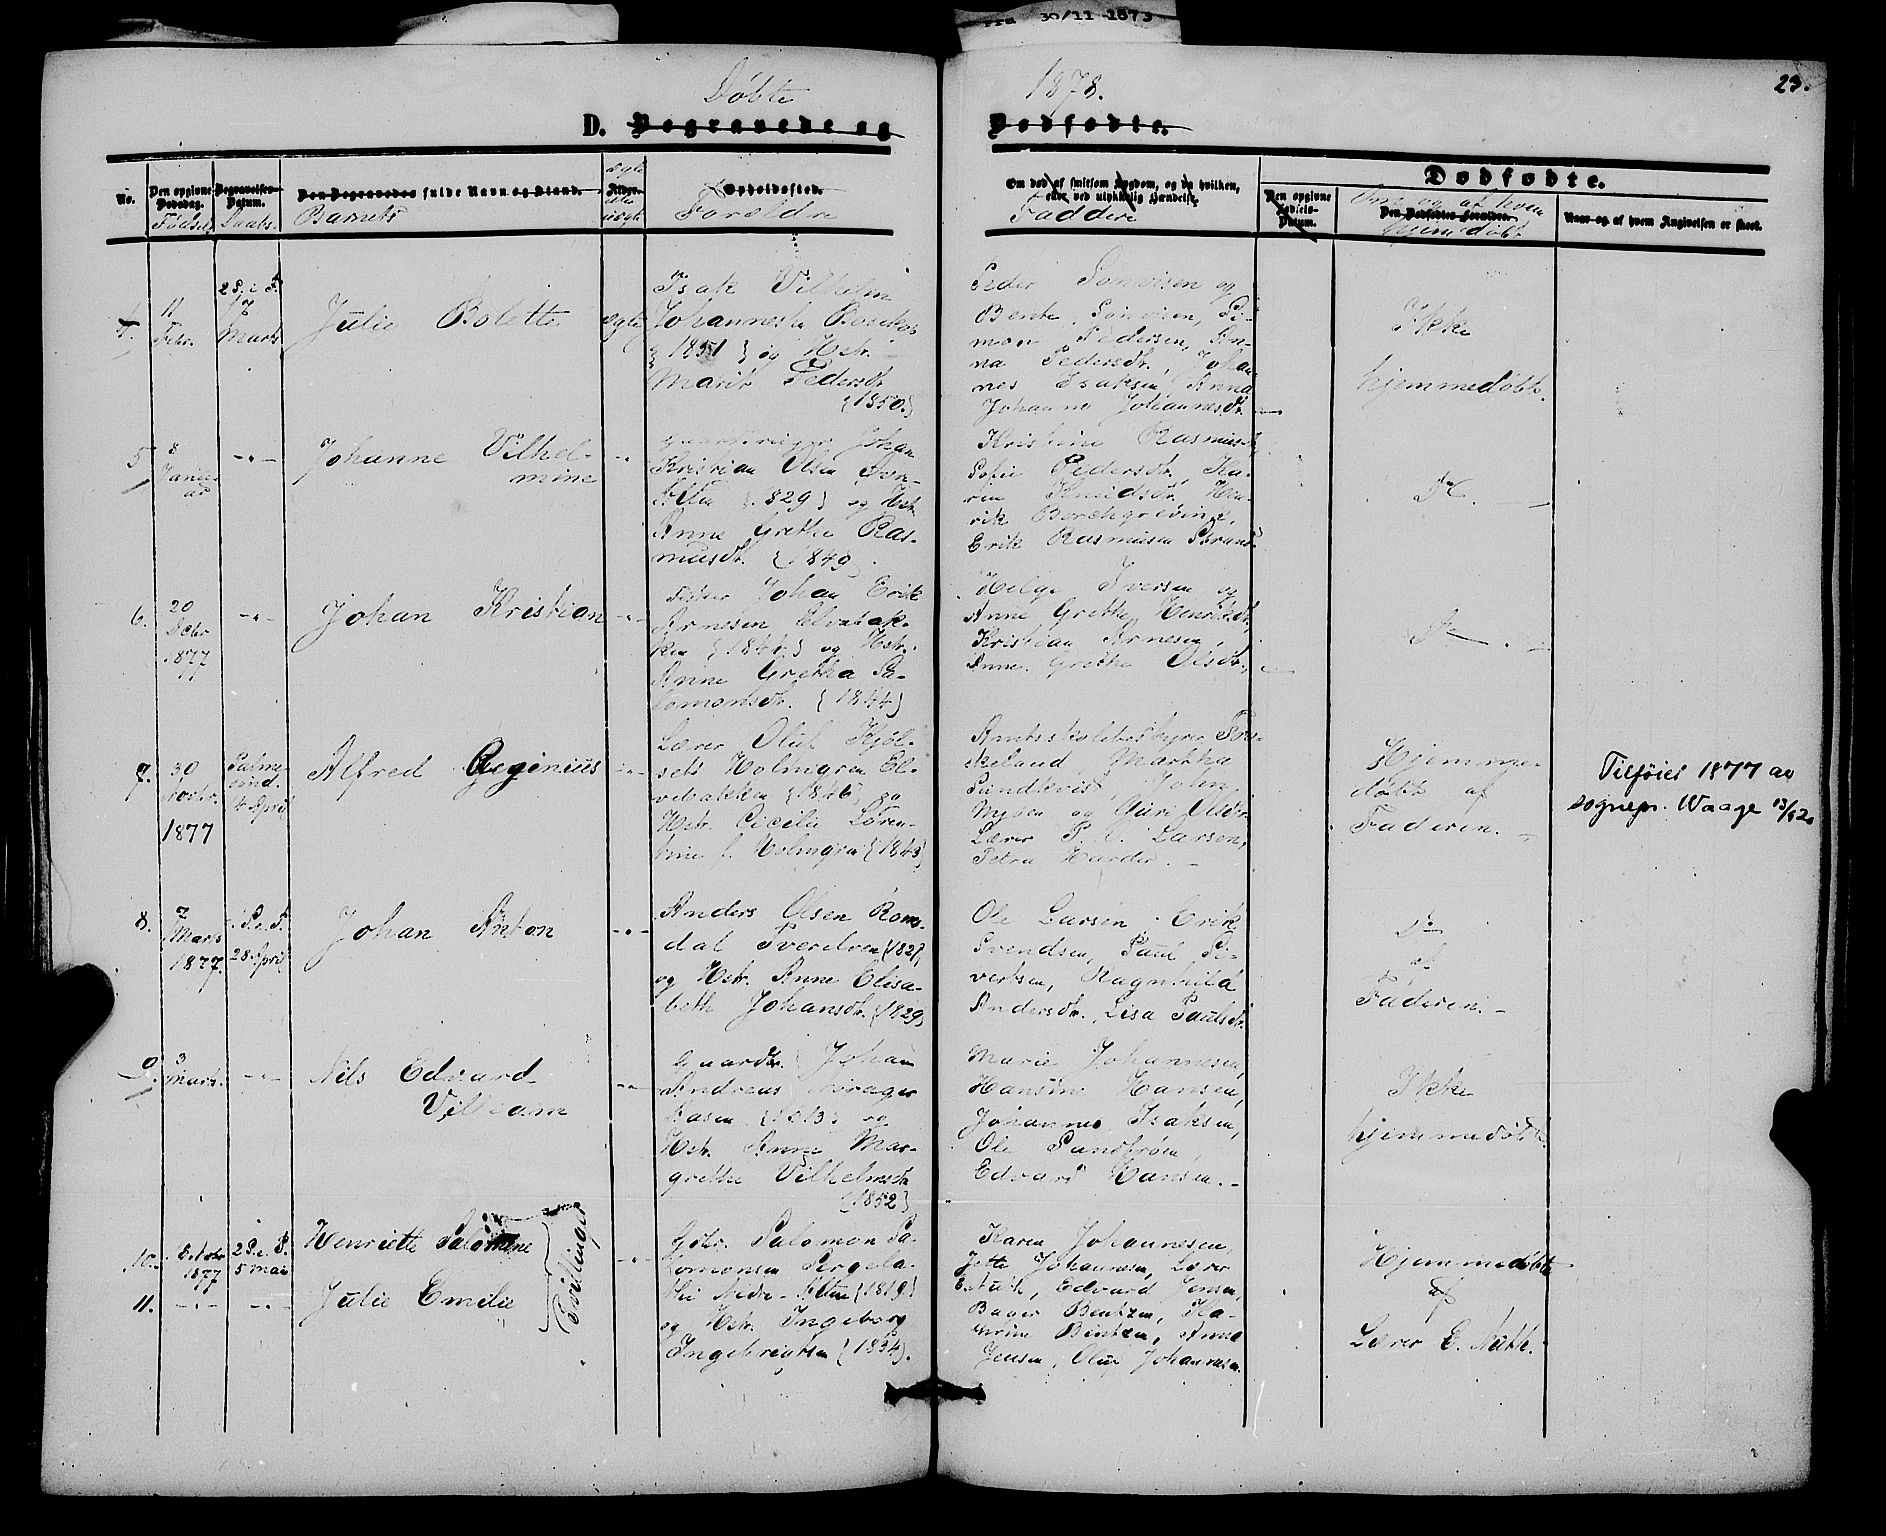 Fra 30/11-1873
23.
Døbte
1878.
D. Begravede og
Dødfødte.
No.
Den opgivne Dødsdag.
Fødsel
Begravelses-Datum.
Daabs-
Den Begravedes fulde Navn og Stand.
Barnets
ægte
Alder.
eller
uægte
Opholdssted.
Forældre
Om død af smitsom Sygdom, og da hvilken,
eller ved ulykkelig Hændelse.
Faddere
Dødfødte.
Den opgivne
Fødsels-
Datum.
Om og af hvem
Den Dødfødtes Forældre.
hjemmedøbt
Naar og af hvem Angivelsen er skeet.
4.
11
Febr.
2 S. i F.
17
Marts
Julie Bolette
ægte
Isak Vilhelm
Johannesen
{1851} og Hstr.
Marit Pedersdr.
{1850.}
Peder Simonsen og
Berthe Simonsen, Si-
mon Pedersen, An-
na Pedersdr., Johan-
nes Isaksen, Anna
Johanne Johannesdr.
Ikke
hjemmedøbt.
5
8
Janu-
ar
-"-
Johanne Vilhel-
mine
-"-
Johan
Kristian Olsen
Alten {1829} og Hstr.
Anne Grethe Ras-
musdr. {1849}.
Kristine Rasmusdr.
Sofie Pedersdr., Ka-
ren Knudsdr., Hen-
rik Borchgrevink,
Erik Rasmusen Strand.
Do.
6.
20
Decbr
1877
-"-
Johan Kristian
-"-
Fisker Johan Erik
Arnesen Elvebak-
ken {1844} og Hstr.
Anne Gretha Sa-
lomonsdr. {1844}
Helge Iversen og
Anne Grethe Henriksdr.,
Kristian Arnesen,
Anne Grethe Olsdr.
Do.
7.
30
Novbr.
1877
Palme-
sønd.
14 April
Alfred Geginius
-"-
Lærer Oluf Kjøl-
seth Holmgren El-
vebakken {1846} og
Hstr. Cicelie Loren-
tine f. Holmgren {1843}
Amtsskolebestyrer
Martha
Sundkvist, John
Mjøen og Guri Olsdr.
Lærer P. C. Larsen,
Petra Harder.
Hjemme-
døbt af
Faderen.
Tilføiet 1877 av
sognepr. Waage 13/520
8.
7
Marts
1877.
1. S. e. P.
28 April
Johan Anton
-"-
Anders Olsen Roms-
dal Tverelven {1827}
og Hstr. Anne Elisa-
beth Johansdr. {1829}
Ole Larsen, Erik
Svendsen, Paul Si-
vertsen, Ragnhild
Andersdr., Lisa Paulsdr.
Do
af
Faderen.
9.
3
Marts.
-"-
Nils Edvard
Vilhelm
-"-
Gaardbr. Johan
Andreas
og
Hstr. Anne Mar-
grethe Vilhelmsdr.
{1852}
Marie Johannesen,
Hansine Hansen,
Johannes Isaksen,
Ole Sundfrøen,
Edvard Hansen.
Ikke
hjemmedøbt.
10.
8 Novbr
1877
2 S. e. P.
5 Mai
Henriette Salomine
Tvillinger
-"-
Gdbr. Salomon Sa-
lomonsen Pegela-
thi Nedre-Alten {1819}
og Hstr. Ingeborg
Ingebrigtsen {1834}.
11.
-"-
-"-
Julie Emilie
Karen Johannesen,
Jette Johannesen, Lærer
E. Muth, Edvard Jensen,
Bager Bentzen, Ka-
thrine Bentzen, Anne
Jensen, Oline Johannesen
Hjemmedøbt
af
Lærer E. Muth.